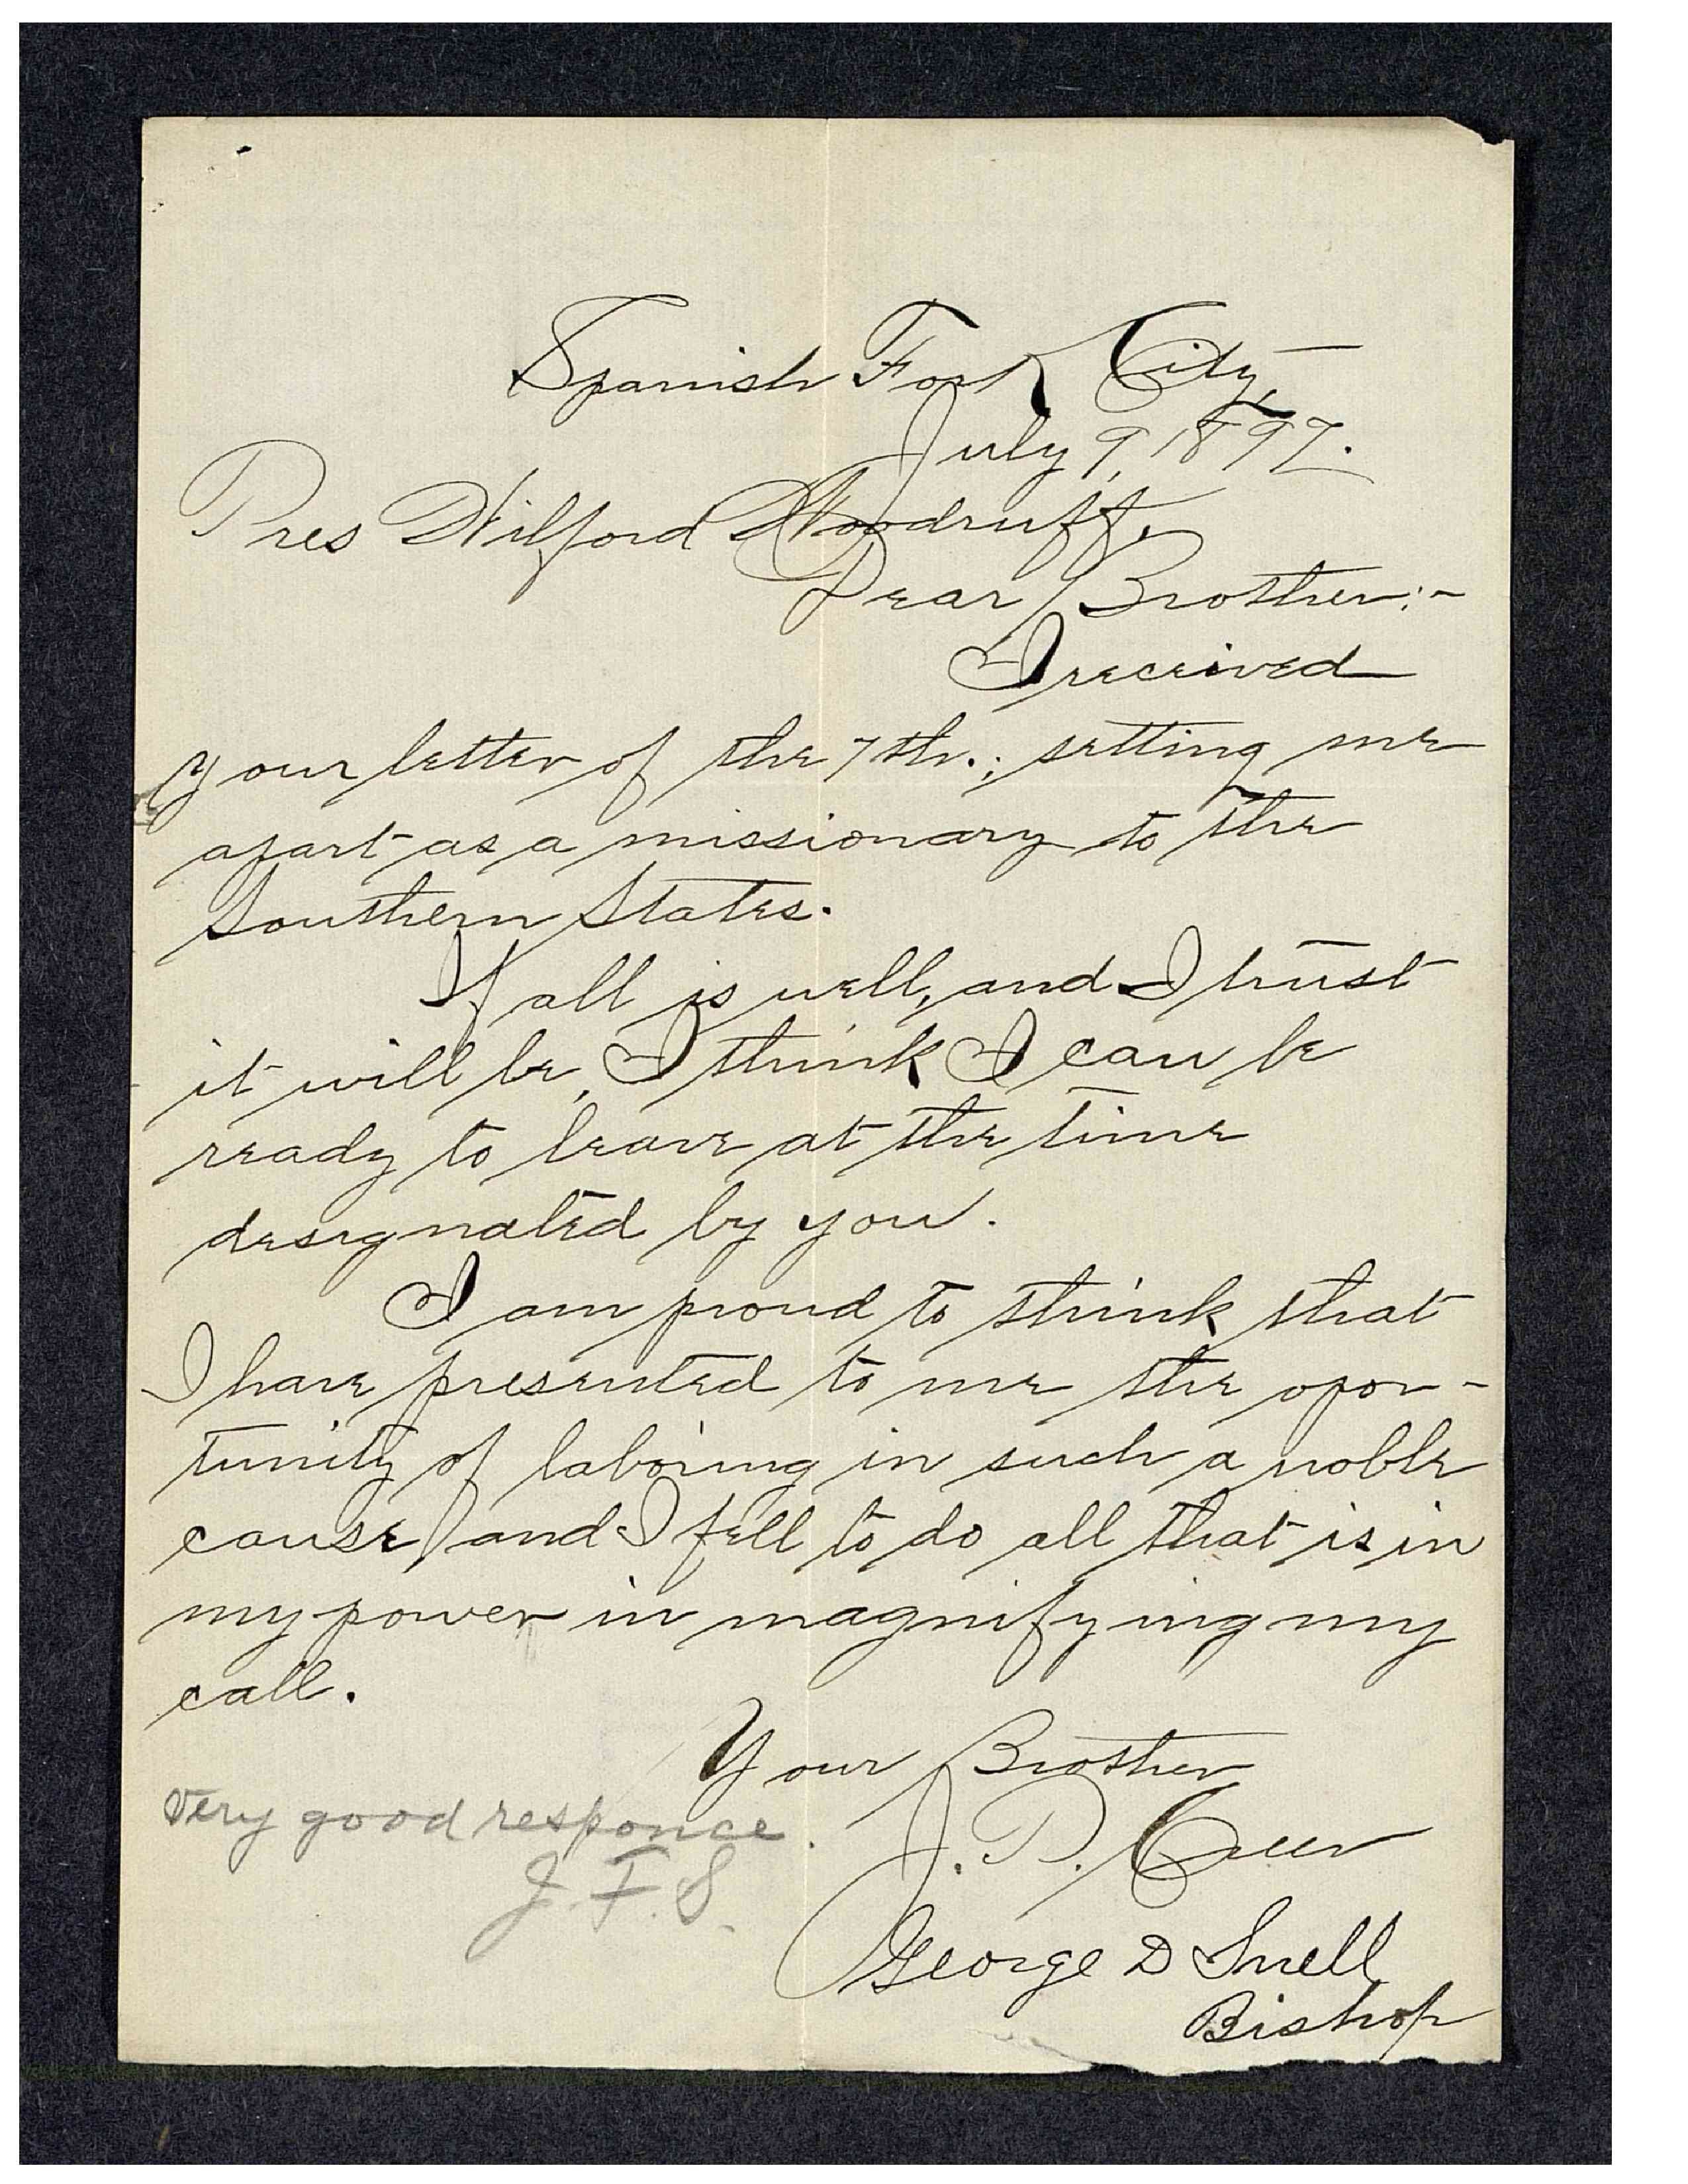 Spanish Fork City,
July 9, 1897.
Pres Wilford Woodruff,
Dear Brother:-
I received
your letter of the 7th.; setting me
apart as a missionary to the
Southern States.
If all is well, and I trust
it will be, I think I can be
ready to leave at the time
designated by you.
I am proud to think that
I have presented to me the opor-
tunity of laboring in such a noble
cause, and I fell to do all that is in
my power in magnifying my
call.
Your Brother
J. P. Creer
very good responce.
J. F. S.
George D Snell
Bishop